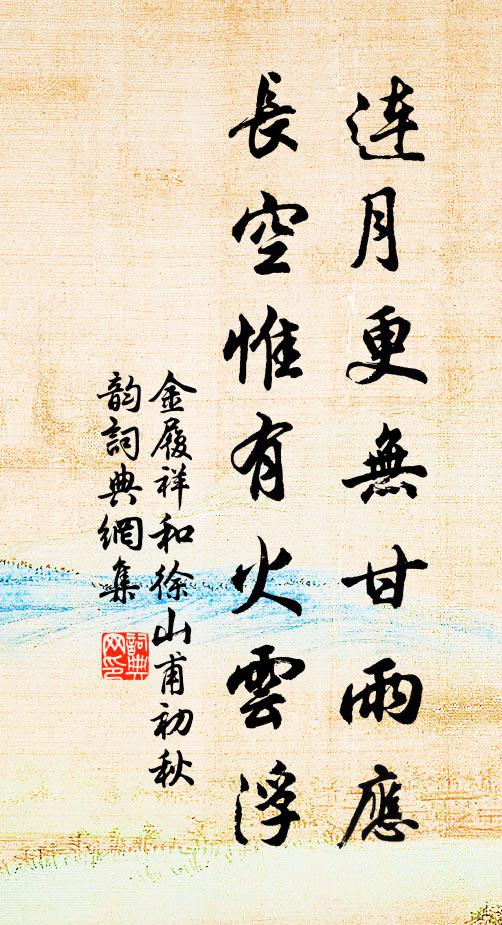 連月更無甘雨應
長空惟有火雲浮
金履祥和徐山甫初秋
韵詞典網集
詞典网印